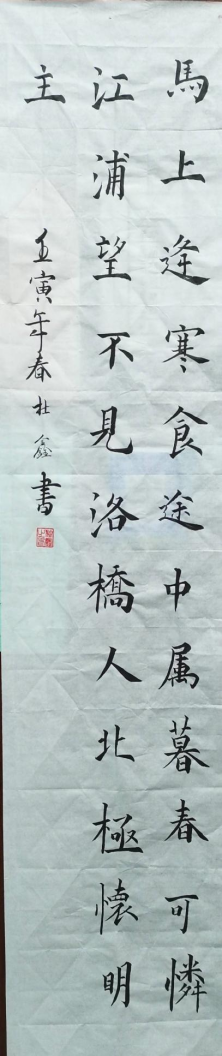 馬上逢寒食途中属暮春可憐
江浦望不見洛橋人北極懷明
主
壬寅年春杜鑫書